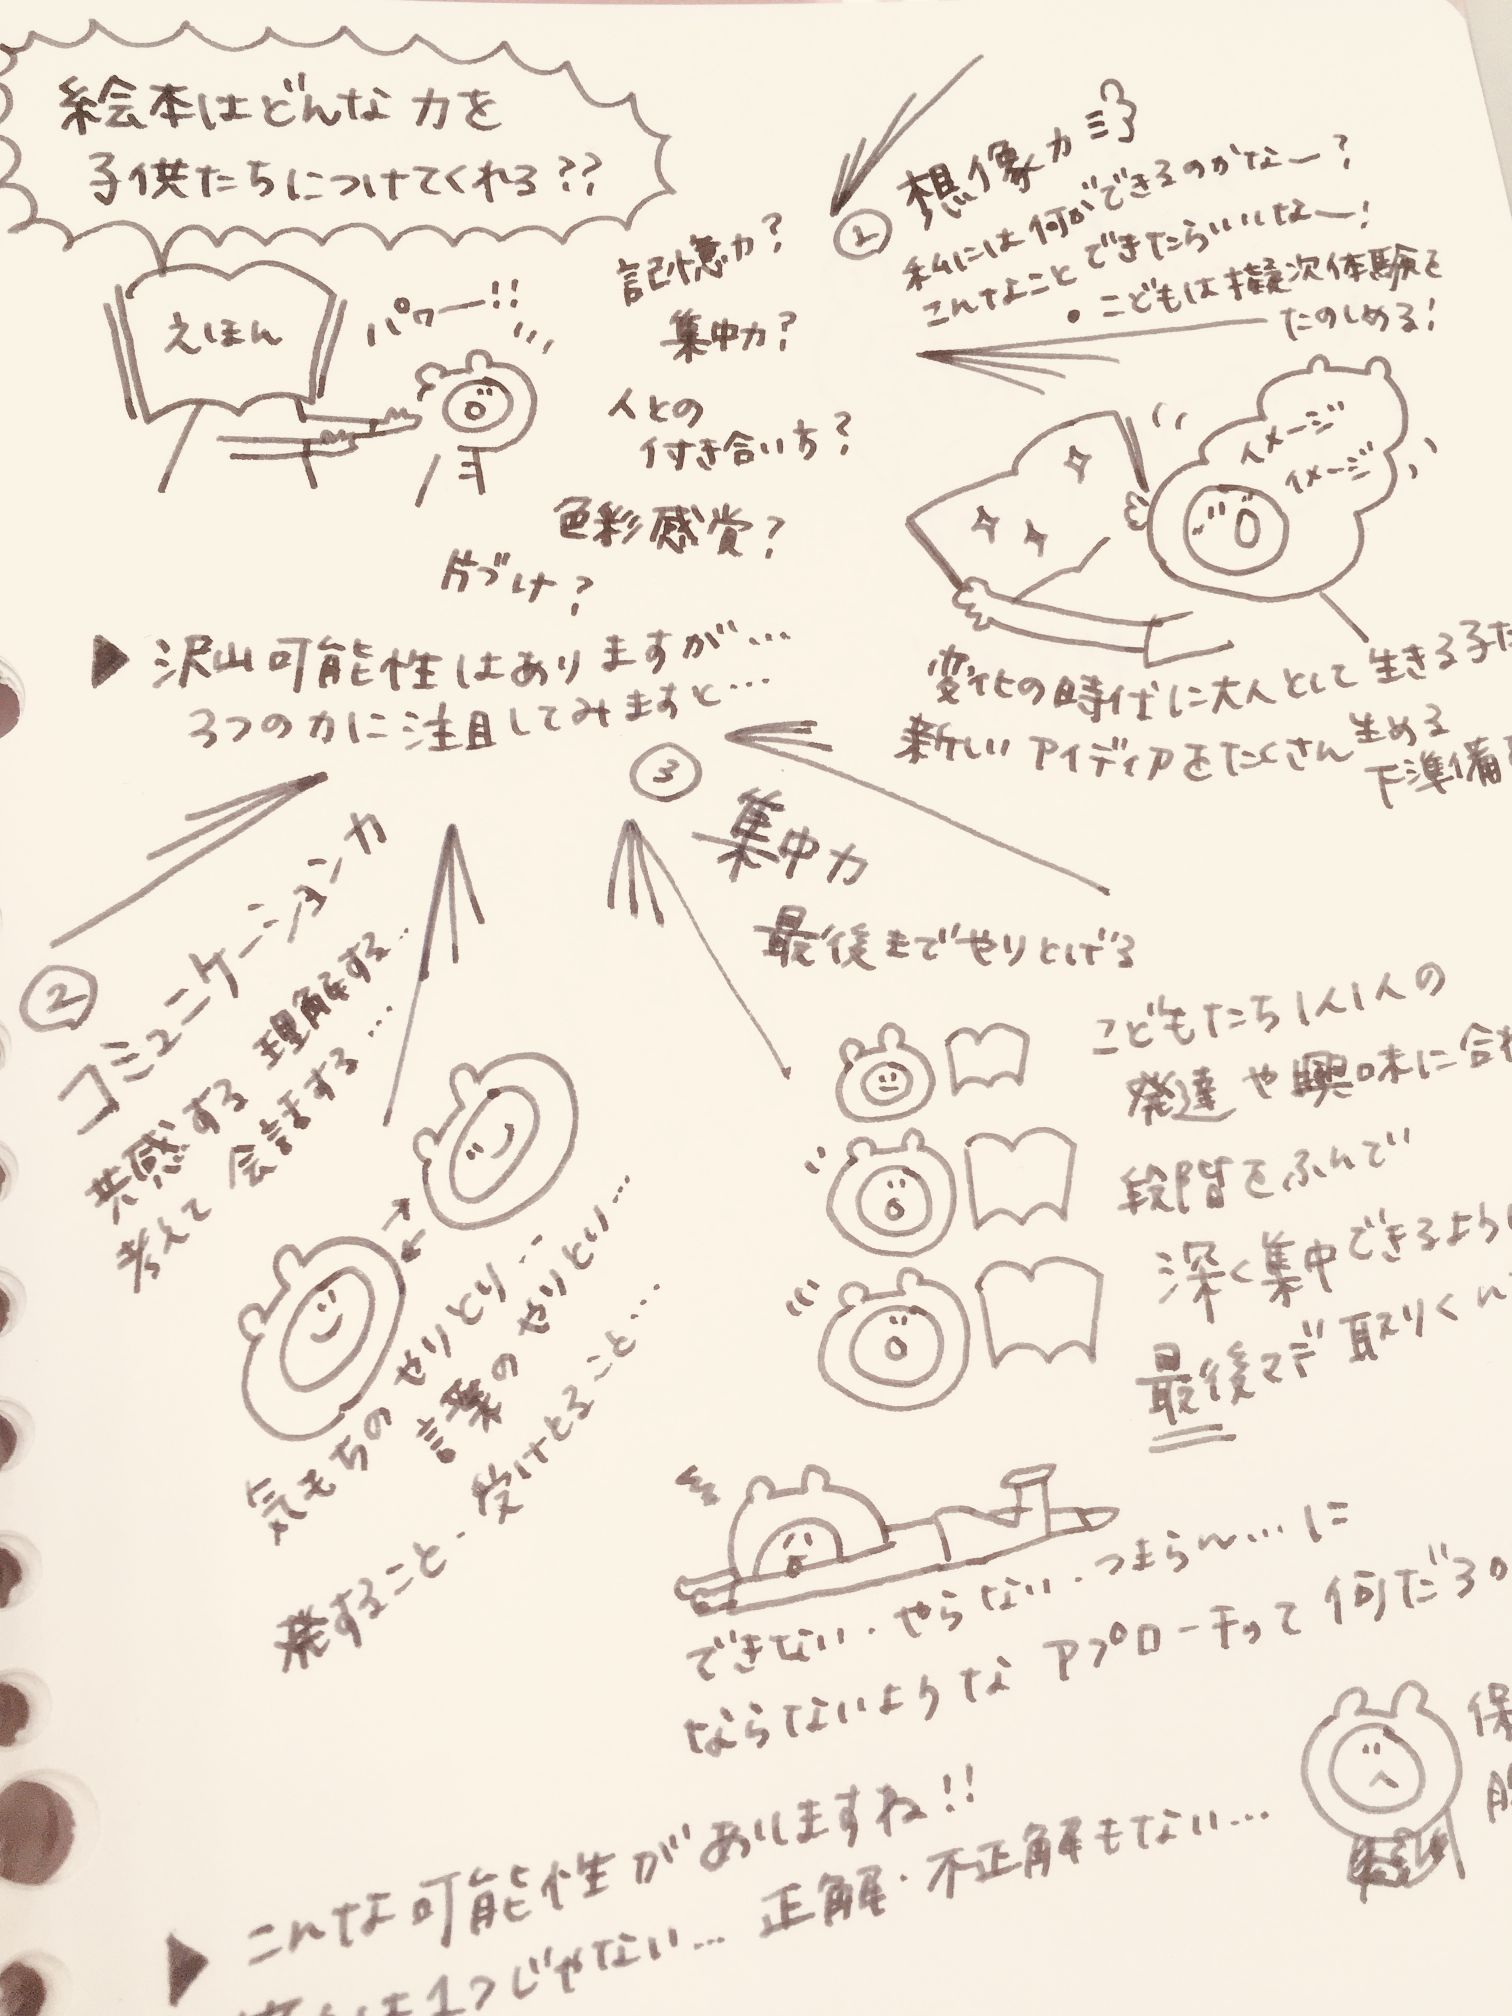 絵本はどんな力を
子供たちにつけてくれる??
えほん
パワー!!
記憶力?
集中力?
人との
付き合い方?
色彩感覚?
片づけ?
▶沢山可能性はありますが…
3つの力に注目してみますと…
① 想像力
私には何ができるのかなー?
こんなことできたらいいなー!
・こどもは擬次体験を
たのしめる!
イメージ
イメージ
変化の時代に大人として生きる子た
新しいアイディアをたくさん生める
下準備
② コミュニケーション力
共感する 理解する…
考えて 会話する…
気もちのやりとり…
言葉のやりとり…
発すること・受けとること…
③ 集中力
最後までやりとげる
こどもたち1人1人の
発達や興味に合わ
段階をふんで
深く集中できるように
最後マデ取りくん
できない・やらない・つまらん…に
ならないようなアプローチって何だろ
保
▶こんな可能性がありますね!!
は1つじゃない… 正解・不正解もない…